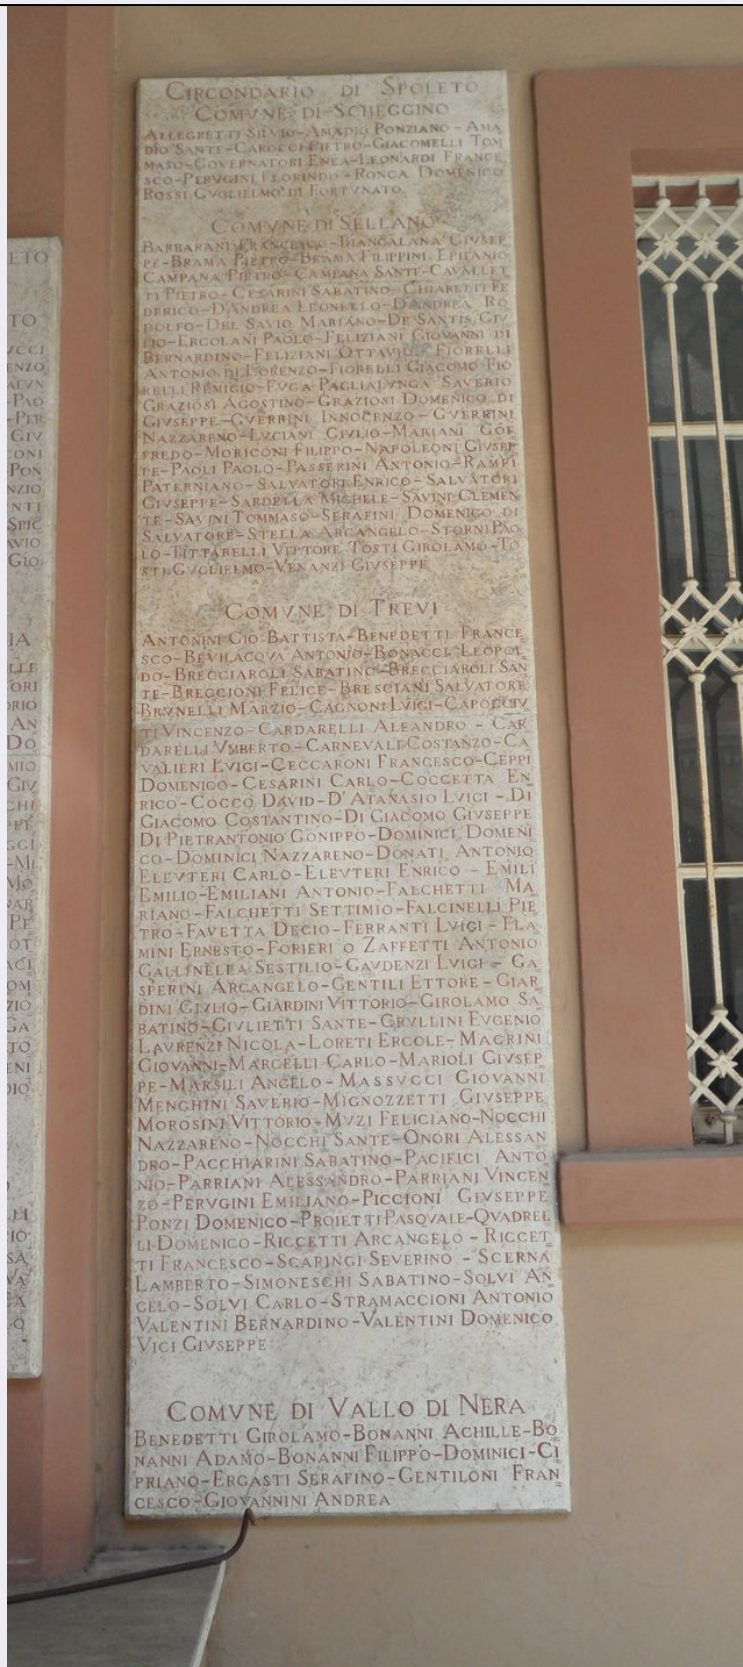 CIRCONDARIO DI SPOLETO
COMVNE DI SCHEGGINO
ALLEGRETTI SILVIO-AMADIO PONZIANO-AMA
DIO SANTE-CAROCCI PIETRO-GIACOMELLI TOM
MASO-GOVERNATORI ENEA-LEONARDI FRANCE
SCO-PERVGINI FLORINDO-RONCA DOMENICO
ROSSI GVGLIELMO DI FORTVNATO
COMVNE DI SELLANO
BARBARANI FRANCESCO-BIANGALANA GIVSEP
PE-BRAMA PIETRO-BRAMA FILIPPINI EPIFANIO
CAMPANA PIETRO-CAMPANA SANTE-CAVALLET
TI PIETRO-CESARINI SABATINO-CHIARETTI FE
DERICO-D'ANDREA LEONELLO-D'ANDREA RO
DOLFO-DEL SAVIO MARIANO-DE SANTIS GIV
LIO-ERCOLANI PAOLO-FELIZIANI GIOVANNI DI
BERNARDINO-FELIZIANI OTTAVIO-FIORELLI
ANTONIO DI LORENZO-FIORELLI GIACOMO FIO
RELLI REMIGIO-FVGA-PAGLIALVNGA SAVERIO
GRAZIOSI AGOSTINO-GRAZIOSI DOMENICO DI
GIVSEPPE-GVERRINI INNOCENZO-GVERRINI
NAZZARENO-LVCIANI GIVLIO-MARIANI GOF
FREDO-MORICONI FILIPPO-NAPOLEONI GIVSEP
PE-PAOLI PAOLO-PASSERINI ANTONIO-RAMPI
PATERNIANO-SALVATORI ENRICO-SALVATORI
GIVSEPPE-SARDELLA MICHELE-SAVINI CLEMEN
TE-SAVINI TOMMASO-SERAFINI DOMENICO DI
SALVATORE-STELLA ARCANGELO-STORNI PAO
LO-TITTARELLI VITTORE TOSTI GIROLAMO-TO
STI GVGLIELMO-VENANZI GIVSEPPE
COMVNE DI TREVI
ANTONINI GIO BATTISTA-BENEDETTI FRANCE
SCO-BEVILACQVA ANTONIO-BONACCI LEOPOL
DO-BRECCIAROLI SABATINO-BRECCIAROLI SAN
TE-BREGCIONI FELICE-BRESCIANI SALVATORE
BRVNELLI MARZIO-CAGNONI LVIGI-CAPOCCIV
TI VINCENZO-CARDARELLI ALEANDRO-CAR
DARELLI VMBERTO-CARNEVALI COSTANZO-CA
VALIERI LVIGI-CECCARONI FRANCESCO-CEPPI
DOMENICO-CESARINI CARLO-COCCETTA EN
RICO-COCCO DAVID-D'ATANASIO LVIGI-DI
GIACOMO COSTANTINO-DI GIACOMO GIVSEPPE
DI PIETRANTONIO GONIPPO-DOMINICI DOMENI
CO-DOMINICI NAZZARENO-DONATI ANTONIO
ELEVTERI CARLO-ELEVTERI ENRICO-EMILI
EMILIO-EMILIANI ANTONIO-FALCHETTI MA
RIANO-FALCHETTI SETTIMIO-FALCINELLI PIE
TRO-FAVETTA DECIO-FERRANTI LVIGI-FLA
MINI ERNESTO-FORIERI O ZAFFETTI ANTONIO
GALLINELLA SESTILIO-GAVDENZI LVIGI-GA
SPERINI ARCANGELO-GENTILI ETTORE-GIAR
DINI GIVLIO-GIARDINI VITTORIO-GIROLAMO SA
BATINO-GIVLIETTI SANTE-GRVLLINI EVGENIO
LAVRENZI NICOLA-LORETI ERCOLE-MAGRINI
GIOVANNI-MARCELLI CARLO-MARIOLI GIVSEP
PE-MARSILI ANGELO-MASSVCCI GIOVANNI
MENGHINI SAVERIO-MIGNOZZETTI GIVSEPPE
MOROSINI VITTORIO-MVZI FELICIANO-NOCCHI
NAZZARENO-NOCCHI SANTE-ONORI ALESSAN
DRO-PACCHIARINI SABATINO-PACIFICI ANTO
NIO-PARRIANI ALESSANDRO-PARRIANI VINCEN
ZO-PERVGINI EMILIANO-PICCIONI GIVSEPPE
PONZI DOMENICO-PROIETTI PASQVALE-QVADREL
LI DOMENICO-RICCETTI ARCANGELO-RICCET
TI FRANCESCO-SCARINGI SEVERINO-SCERNA
LAMBERTO-SIMONESCHI SABATINO-SOLVI AN
GELO-SOLVI CARLO-STRAMACCIONI ANTONIO
VALENTINI BERNARDINO-VALENTINI DOMENICO
VICI GIVSEPPE
COMVNE DI VALLO DI NERA
BENEDETTI GIROLAMO-BONANNI ACHILLE-BO
NANNI ADAMO-BONANNI FILIPPO-DOMINICI-CI
PRIANO-ERGASTI SERAFINO-GENTILONI FRAN
CESCO-GIOVANNINI ANDREA